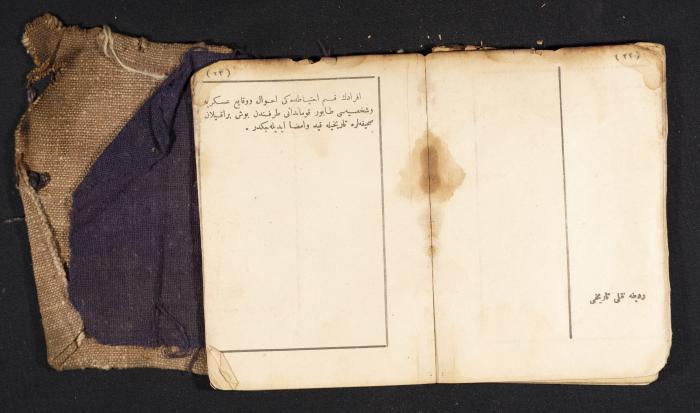 (٢٢)
رديفه نقلى تاريخى
(٢٣)
افرادك قسم احتياطده كى احوال ووقايع عسكريه
وشخصيه سى طابور قوماندانى طرفندن بوش براقيلان
صحيفه لره تاريخيله قيد وامضا ايديله جكدر .